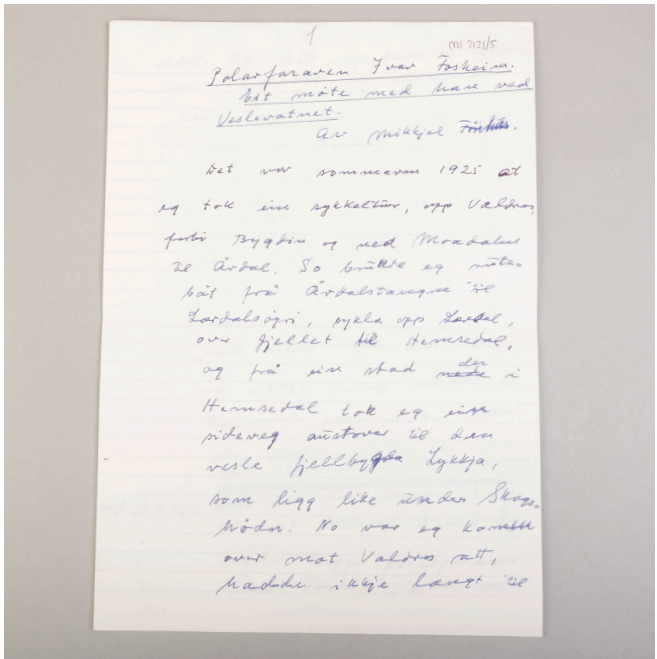 1.
ms 2121/5
Polarfararen Ivar Fosheim.
Eit møte med han ved
Veslevatnet.
Av Mikkjel Fønhus.
Det var sommaren 1925 at
eg tok ein sykkeltur, opp Valdres,
forbi Bygdin og ned Moadalen
til Årdal. So brukte eg
båt frå Årdalstangen til
Lærdalsøyri, sykla opp Lærdal,
over fjellet til Hemsedal,
og frå ein stad der nede i
Hemsedal tok eg ein
sideveg austover til den
vesle fjellbygda Lykkja,
som ligg like under Skogs-
hødn. No var eg komen
over mot Valdres att,
hadde ikkje langt til